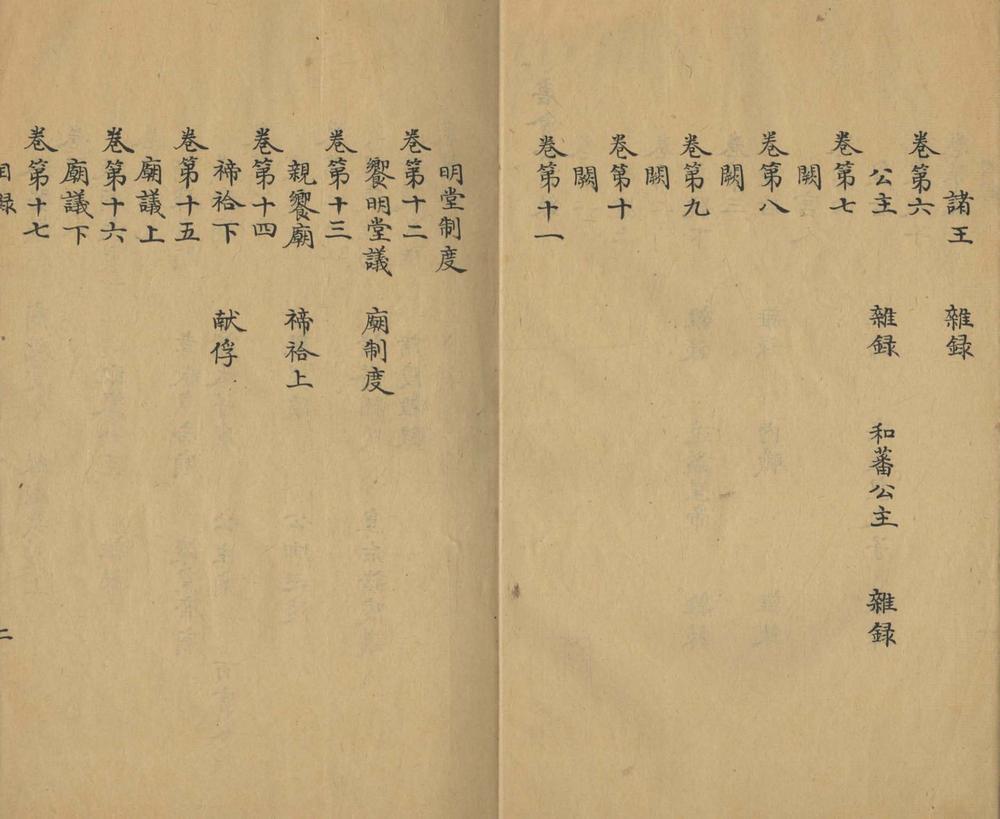 諸王 雜録
卷第六
公主 雜録 和蕃公主 雜録
卷第七
闕
卷第八
闕
卷第九
闕
卷第十
闕
卷第十一
明堂制度
卷第十二
饗明堂議 廟制度
卷第十三
親饗廟 禘祫上
卷第十四
禘祫下 献俘
卷第十五
廟議上
卷第十六
廟議下
卷第十七
目録 二